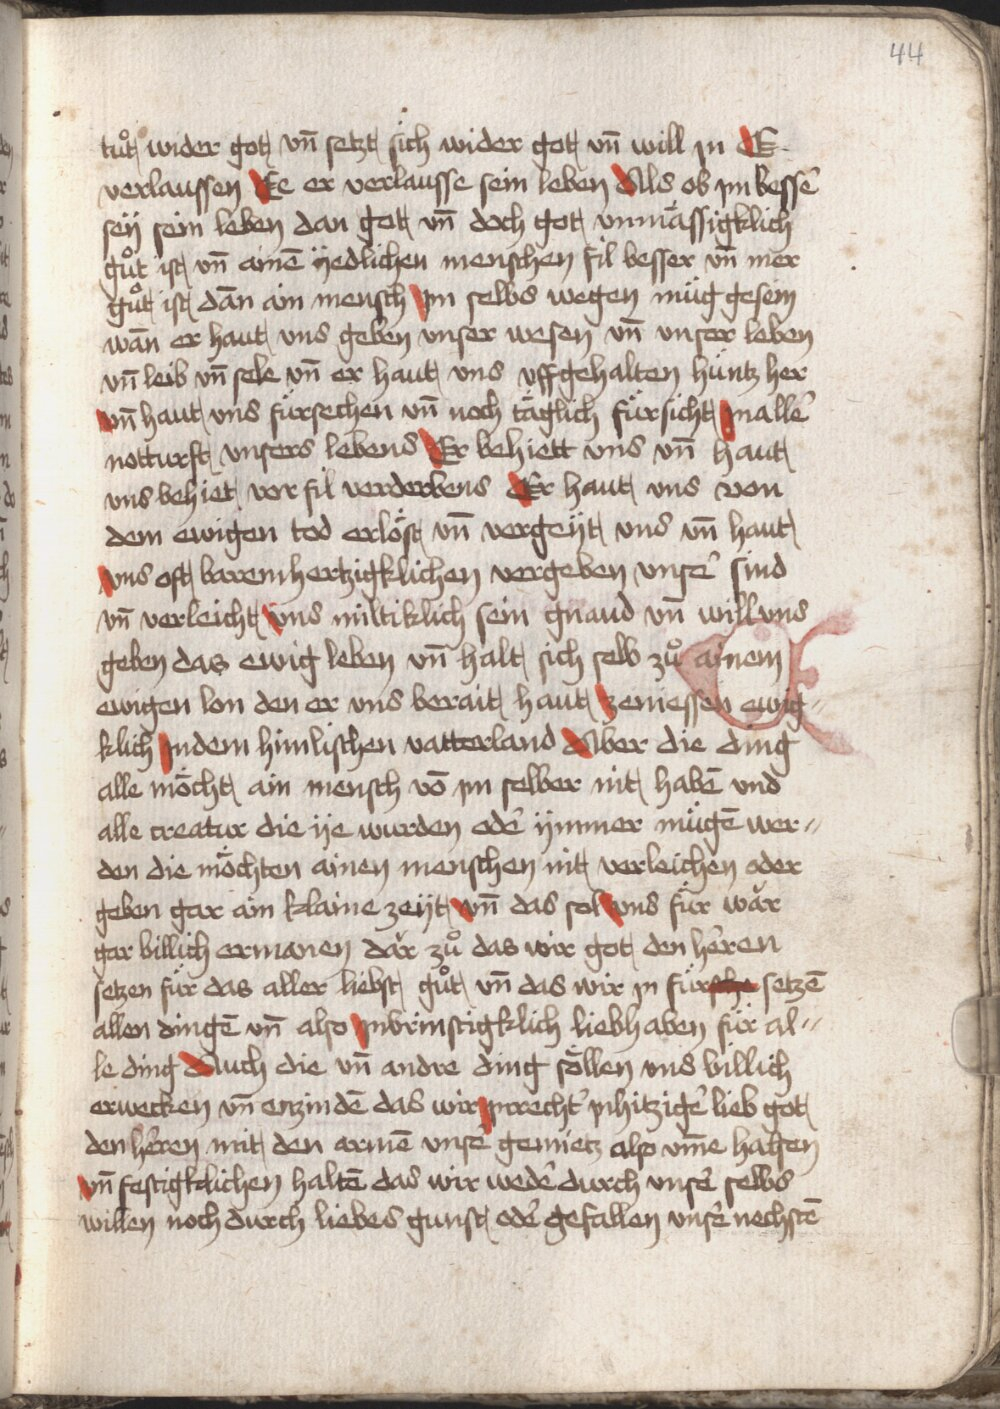 44
tuͦt wider got vn̄ setzt sich wider got vn̄ will in E
verlaussen Ee er verlausse sein leben Als ob im besse᷑
seÿ sein leben dan got vn̄ doch got vnmässigklich
guͦt ist vn̄ ainē ÿedlichen menschen fil besser vn̄ mer
guͦt ist dān ain mensch im selbs wegen müg gesein
wān er haut vns geben vnser wesen vn̄ vnser leben
vn̄ leib vn̄ sele vn̄ er haut vns vffgehalten hüntz her
vn̄ haut vns fürsechen vn̄ noch täglich fürsicht in alle᷑
notturft vnsers lebens Er behiett vns vn̄ haut
vns behiet vor fil verderbens Er haut vns von
dem ewigen tod erlöst vn̄ vergeÿt vns vn̄ haut
vns oft baremhertzigklichen vergeben vnse᷑ sind
vn̄ verleicht vns miltiklich sein gnaud vn̄ will vns
geben das ewig leben vn̄ halt sich selb zuͦ ainem
ewigen lon den er vns berait haut zeniessen ewig〃
klich in dem himlischen vatterland Aber die ding
alle möcht ain mensch vō im selber nit habē vnd
alle creatur die ÿe wurden ode᷑ ÿmmer mügē wer〃
den die möchten ainen menschen nit verleichen oder
geben gar ain klaine zeÿt vn̄ das sol vns für war
gar billich ermanen dar zuͦ das wir got den he᷑ren
setzen für das aller liebst guͦt vn̄ das wir in für setzē
allen dingē vn̄ also inbrinstigklich liebhaben für al〃
le ding Auch die vn̄ andre ding söllen vns billich
erwecken vn̄ enzindē das wir in recht᷑ inhitzige᷑ lieb got
den he᷑ren mit den armē vnse᷑ gemietz also vm̄e halsen
vn̄ festigklichen haltē das wir wede᷑ durch vnse᷑ selbs
willen noch durch liebes gunst ode᷑ gefallen vnse᷑ nechstē